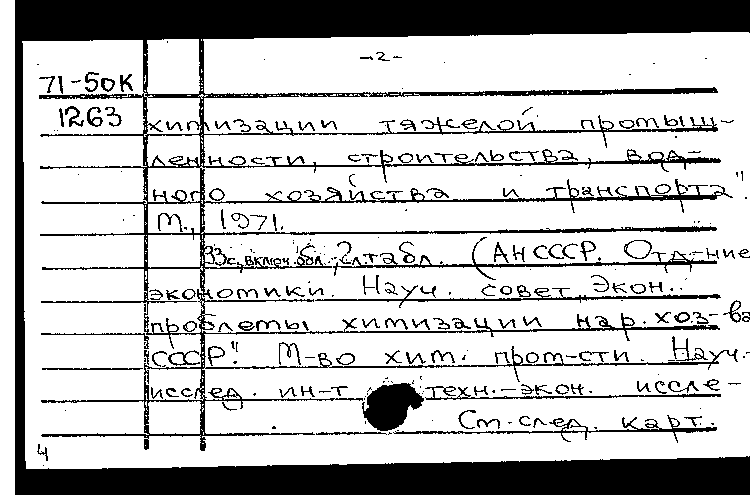 -2-
71-50К
1263 химизации тяжелой промыш-
ленности, строительства, вод-
ного хозяйства и транспорта".
М., 1971.
33с, включ. обл., 2л.табл. (АН СССР. Отд-ние
экономики. Науч. совет „Экон.
проблемы химизации нар. хоз-ва
СССР". М-во хим. пром-сти. Науч.-
исслед. ин-т техн.-экон. иссле-
См. след. карт.
4